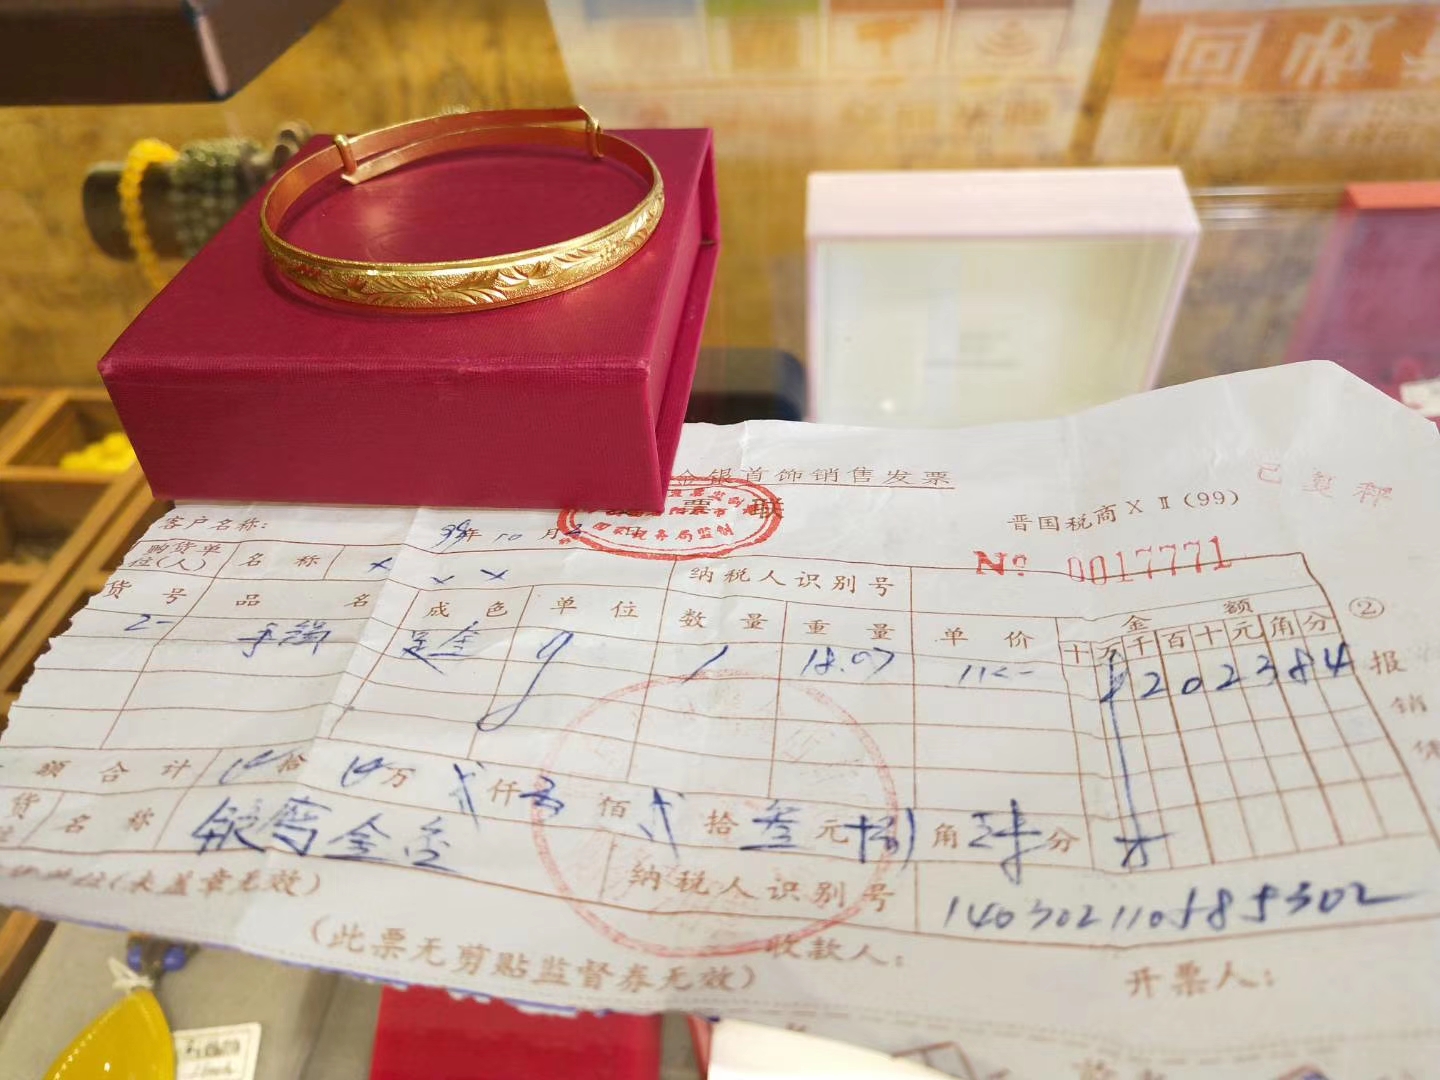 金银首饰销售发票
票 联
已复秤
晋国税商XⅡ(99)
客户名称:
99年10月2日
№ 0017771
购货单位(人) 名称 × × × 纳税人识别号
货号 品名 成色 单位 数量 重量 单价 金额
十 万 千 百 十 元 角 分
2- 手镯 足金 g 1 18.07 112- ¥202384
②
报销凭
额合计 拾 万 贰仟 零佰 贰拾叁元捌角肆分
货 名称 银鹰金店 纳税人识别号 140302110585302
(未盖章无效)
收款人:
开票人:
(此票无剪贴监督券无效)